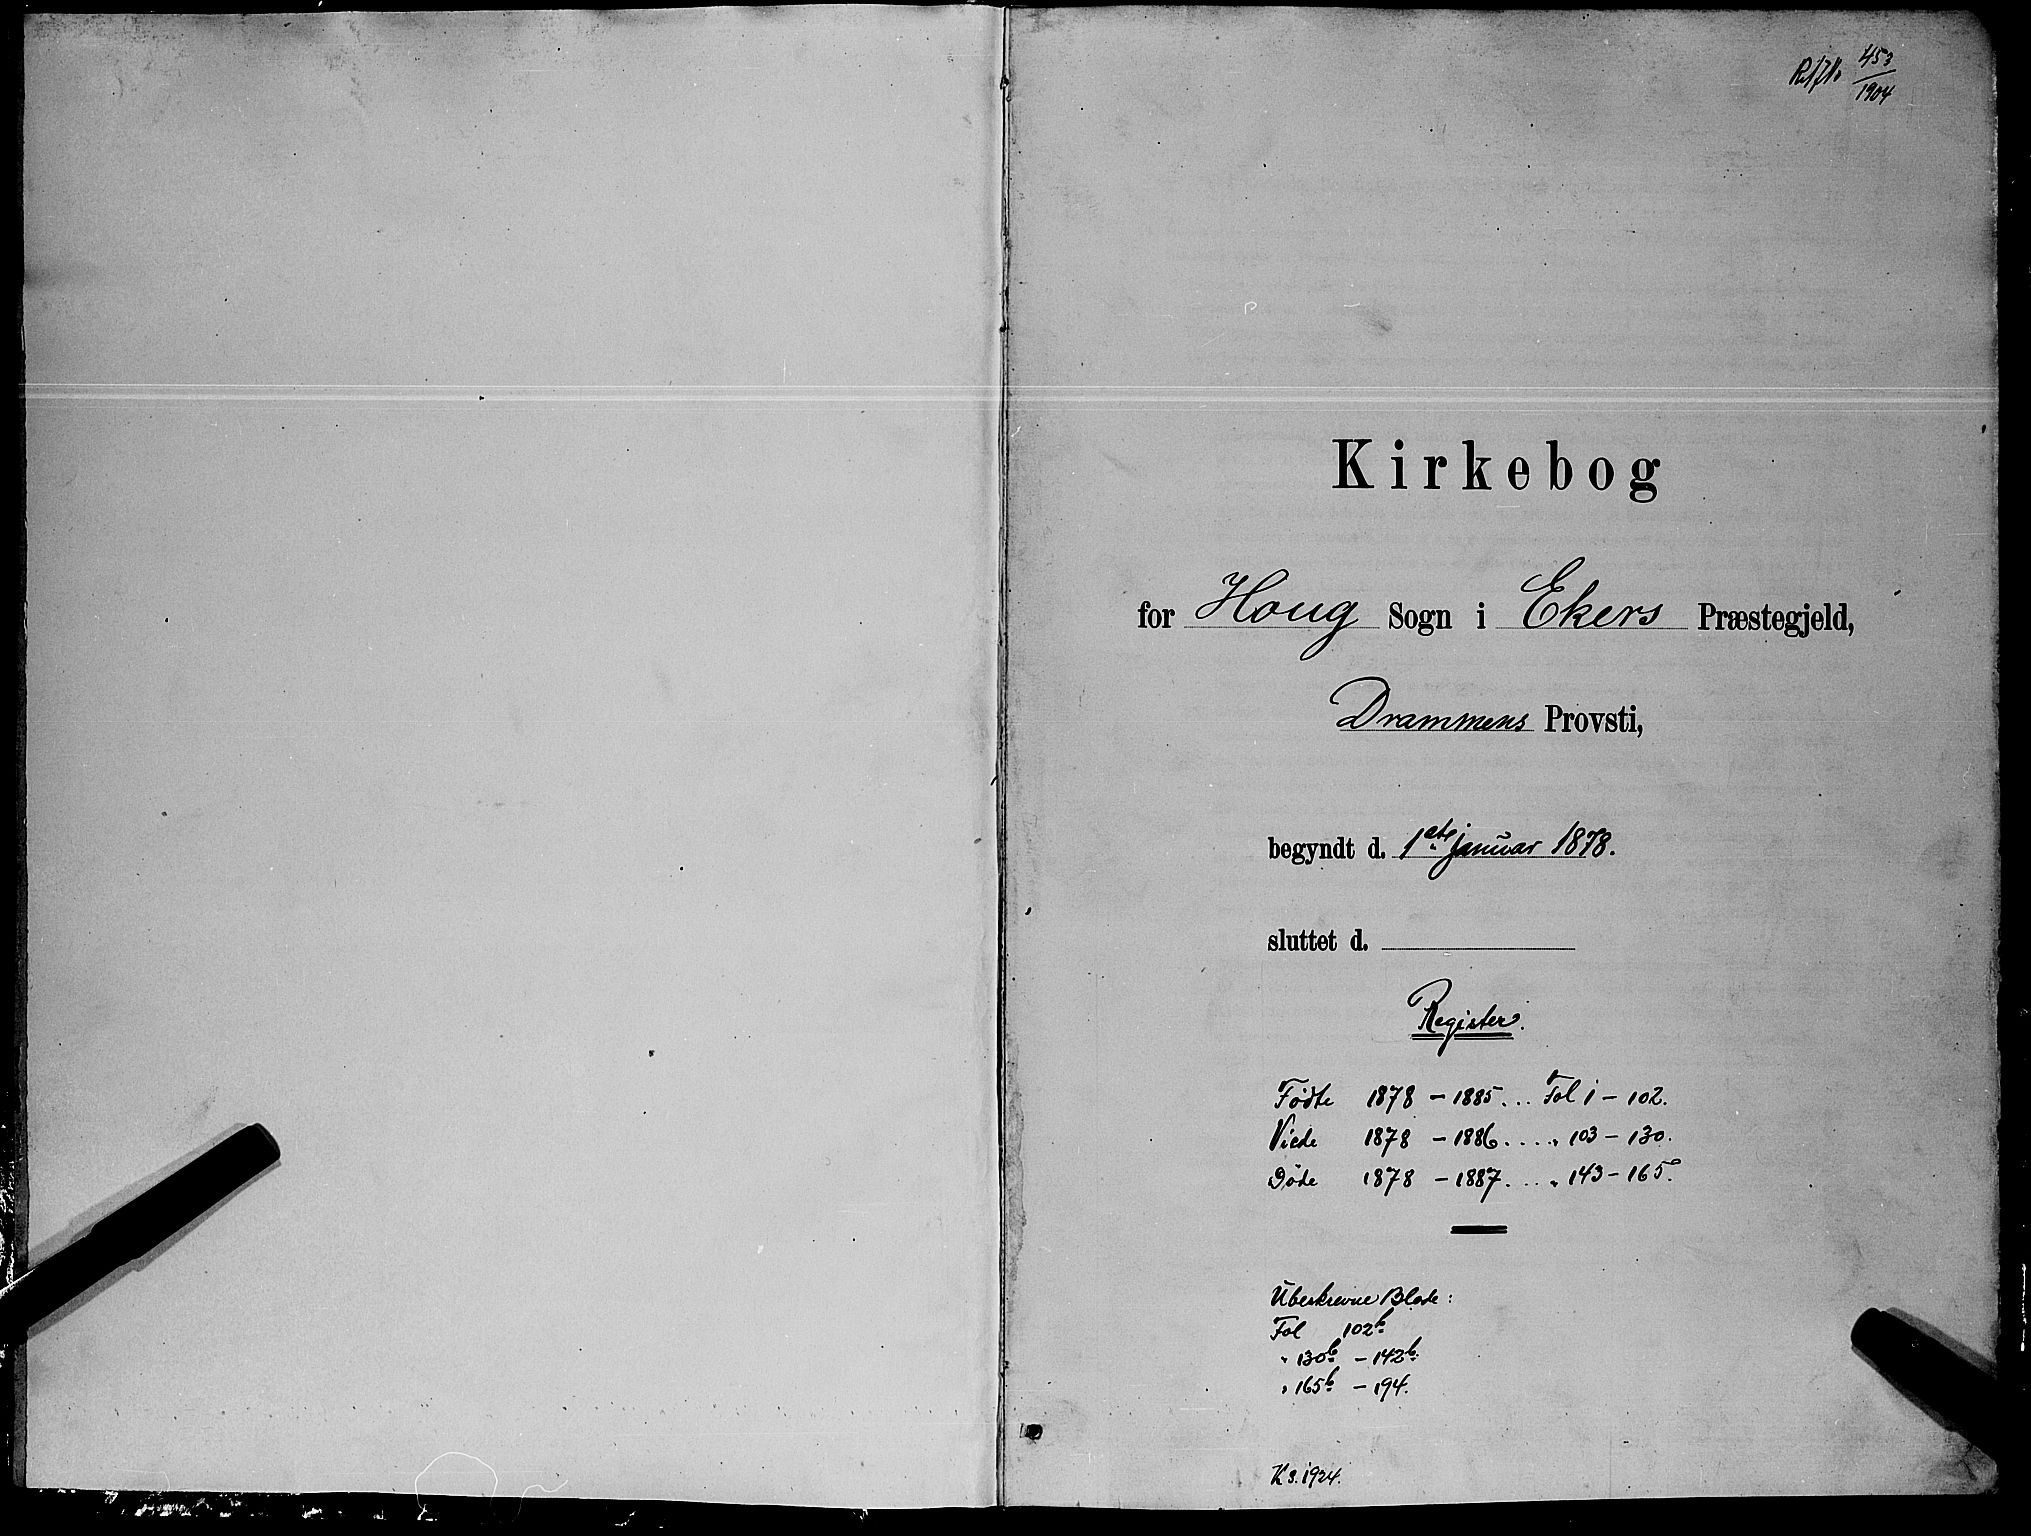 453
1904
Kirkebog
for Houg Sogn i Ekers Præstegjeld,
Drammens Provsti,
begyndt d. 1ste januar 1878.
sluttet d.
Register.
Fødte 1878 – 1885 ... Fol 1 – 102.
Viede 1878 – 1886 .... " 103 – 130.
Døde 1878 – 1887 .... " 143 – 165.
Ubeskrevne Blade:
Fol 102b.
" 130b. – 142b.
" 165b. – 194.
K s. 1924.